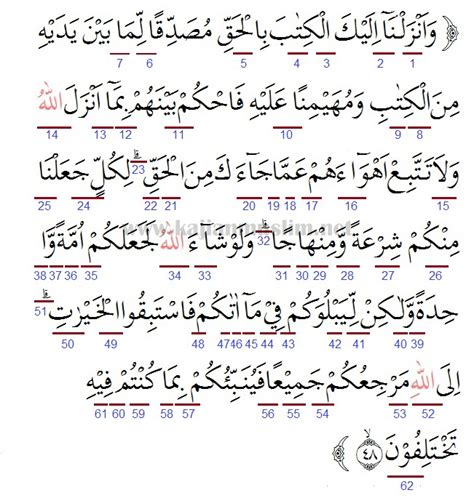 وَاَنْزَلْنَآ اِلَيْكَ الْكِتٰبَ بِالْحَقِّ مُصَدِّقًا لِّمَا بَيْنَ يَدَيْهِ
1 2 3 4 5 6 7
مِنَ الْكِتٰبِ وَمُهَيْمِنًا عَلَيْهِ فَاحْكُمْ بَيْنَهُمْ بِمَآ اَنْزَلَ اللّٰهُ
8 9 10 11 12 13 14
وَلَا تَتَّبِعْ اَهْوَاۤءَهُمْ عَمَّا جَاۤءَكَ مِنَ الْحَقِّۗ لِكُلٍّ جَعَلْنَا
15 16 17 18 19 20 21 22 23 24 25
www.kajianmuslim.net
مِنْكُمْ شِرْعَةً وَّمِنْهَاجًاۗ وَلَوْ شَاۤءَ اللّٰهُ لَجَعَلَكُمْ اُمَّةً وَّا
26 27 28 29 30 31 32 33 34 35 36 37 38
حِدَةً وَّلٰكِنْ لِّيَبْلُوَكُمْ فِيْ مَآ اٰتٰىكُمْ فَاسْتَبِقُوا الْخَيْرٰتِۗ
39 40 41 42 43 44 45 46 47 48 49 50 51
اِلَى اللّٰهِ مَرْجِعُكُمْ جَمِيْعًا فَيُنَبِّئُكُمْ بِمَا كُنْتُمْ فِيْهِ
52 53 54 55 56 57 58 59 60 61
تَخْتَلِفُوْنَۙ ٤٨
62